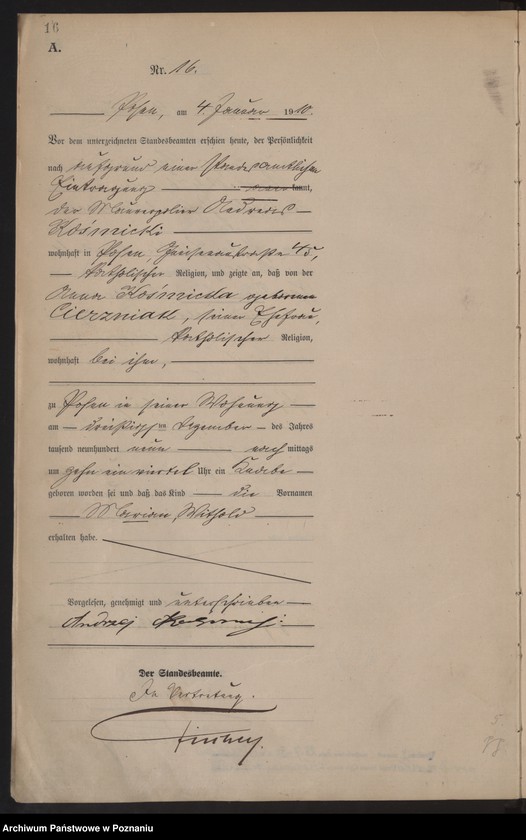 16
A.
Nr. 16.
Posen, am 4. Januar 1910.
Vor dem unterzeichneten Standesbeamten erschien heute, der Persönlichkeit
nach aufgrund einer standesamtlichen
Eintragung kannt,
der
Kośmicki
wohnhaft in Posen, 45,
katholischer Religion, und zeigte an, daß von der
Anna Kośmicka geborenen
Cierzniak, seiner Ehefrau,
katholischer Religion,
wohnhaft bei ihm,
zu Posen in seiner Wohnung
am dreißigsten Dezember des Jahres
tausend neunhundert neun nachmittags
um zehn ein viertel Uhr ein Knabe
geboren worden sei und daß das Kind die Vornamen
Marian Withold
erhalten habe.
Vorgelesen, genehmigt und unterschrieben
Andrzej
Der Standesbeamte.
In Vertretung.
Archiwum Państwowe w Poznaniu